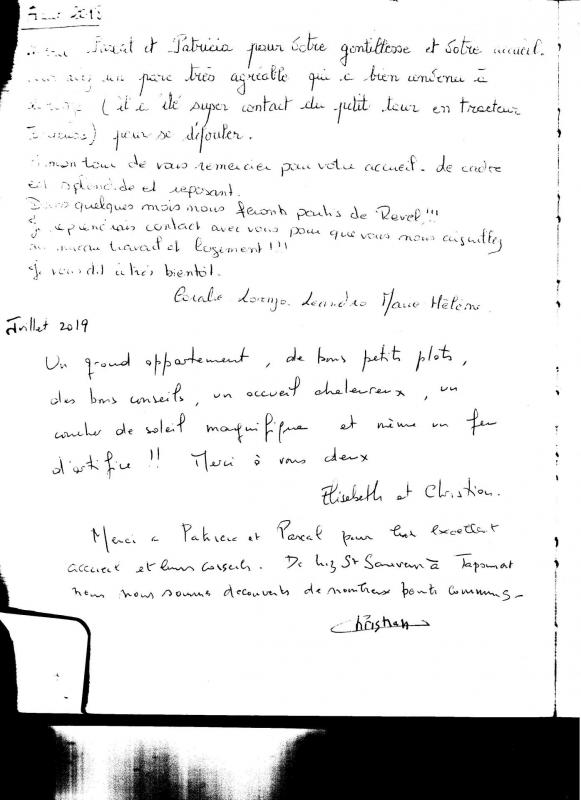 2018
Pascal et Patricia pour votre gentillesse et votre accueil.
un parc très agréable qui a bien convenu à
(il a été super contact du petit tour en tracteur
) pour se défouler.
mon tour de vous remercier pour votre accueil. de cadre
est splendide et reposant.
Dans quelques mois nous feront partis de Revel!!!
Je reprendrais contact avec vous pour que vous nous aiguillez
au niveau travail et logement!!!
Je vous dit à très bientôt.
Coralie Lorenzo. Leandro Marie Hélène
Juillet 2019
Un grand appartement, de bons petits plats,
des bons conseils, un accueil chaleureux, un
coucher de soleil magnifique et même un feu
d'artifice!! Merci à vous deux
Elisabeth et Christian.
Merci a Patricia et Pascal pour leur excellent
accueil et leurs conseils. De Luz St Sauveur à
nous nous sommes decouverts de nombreux points communs-
Christian